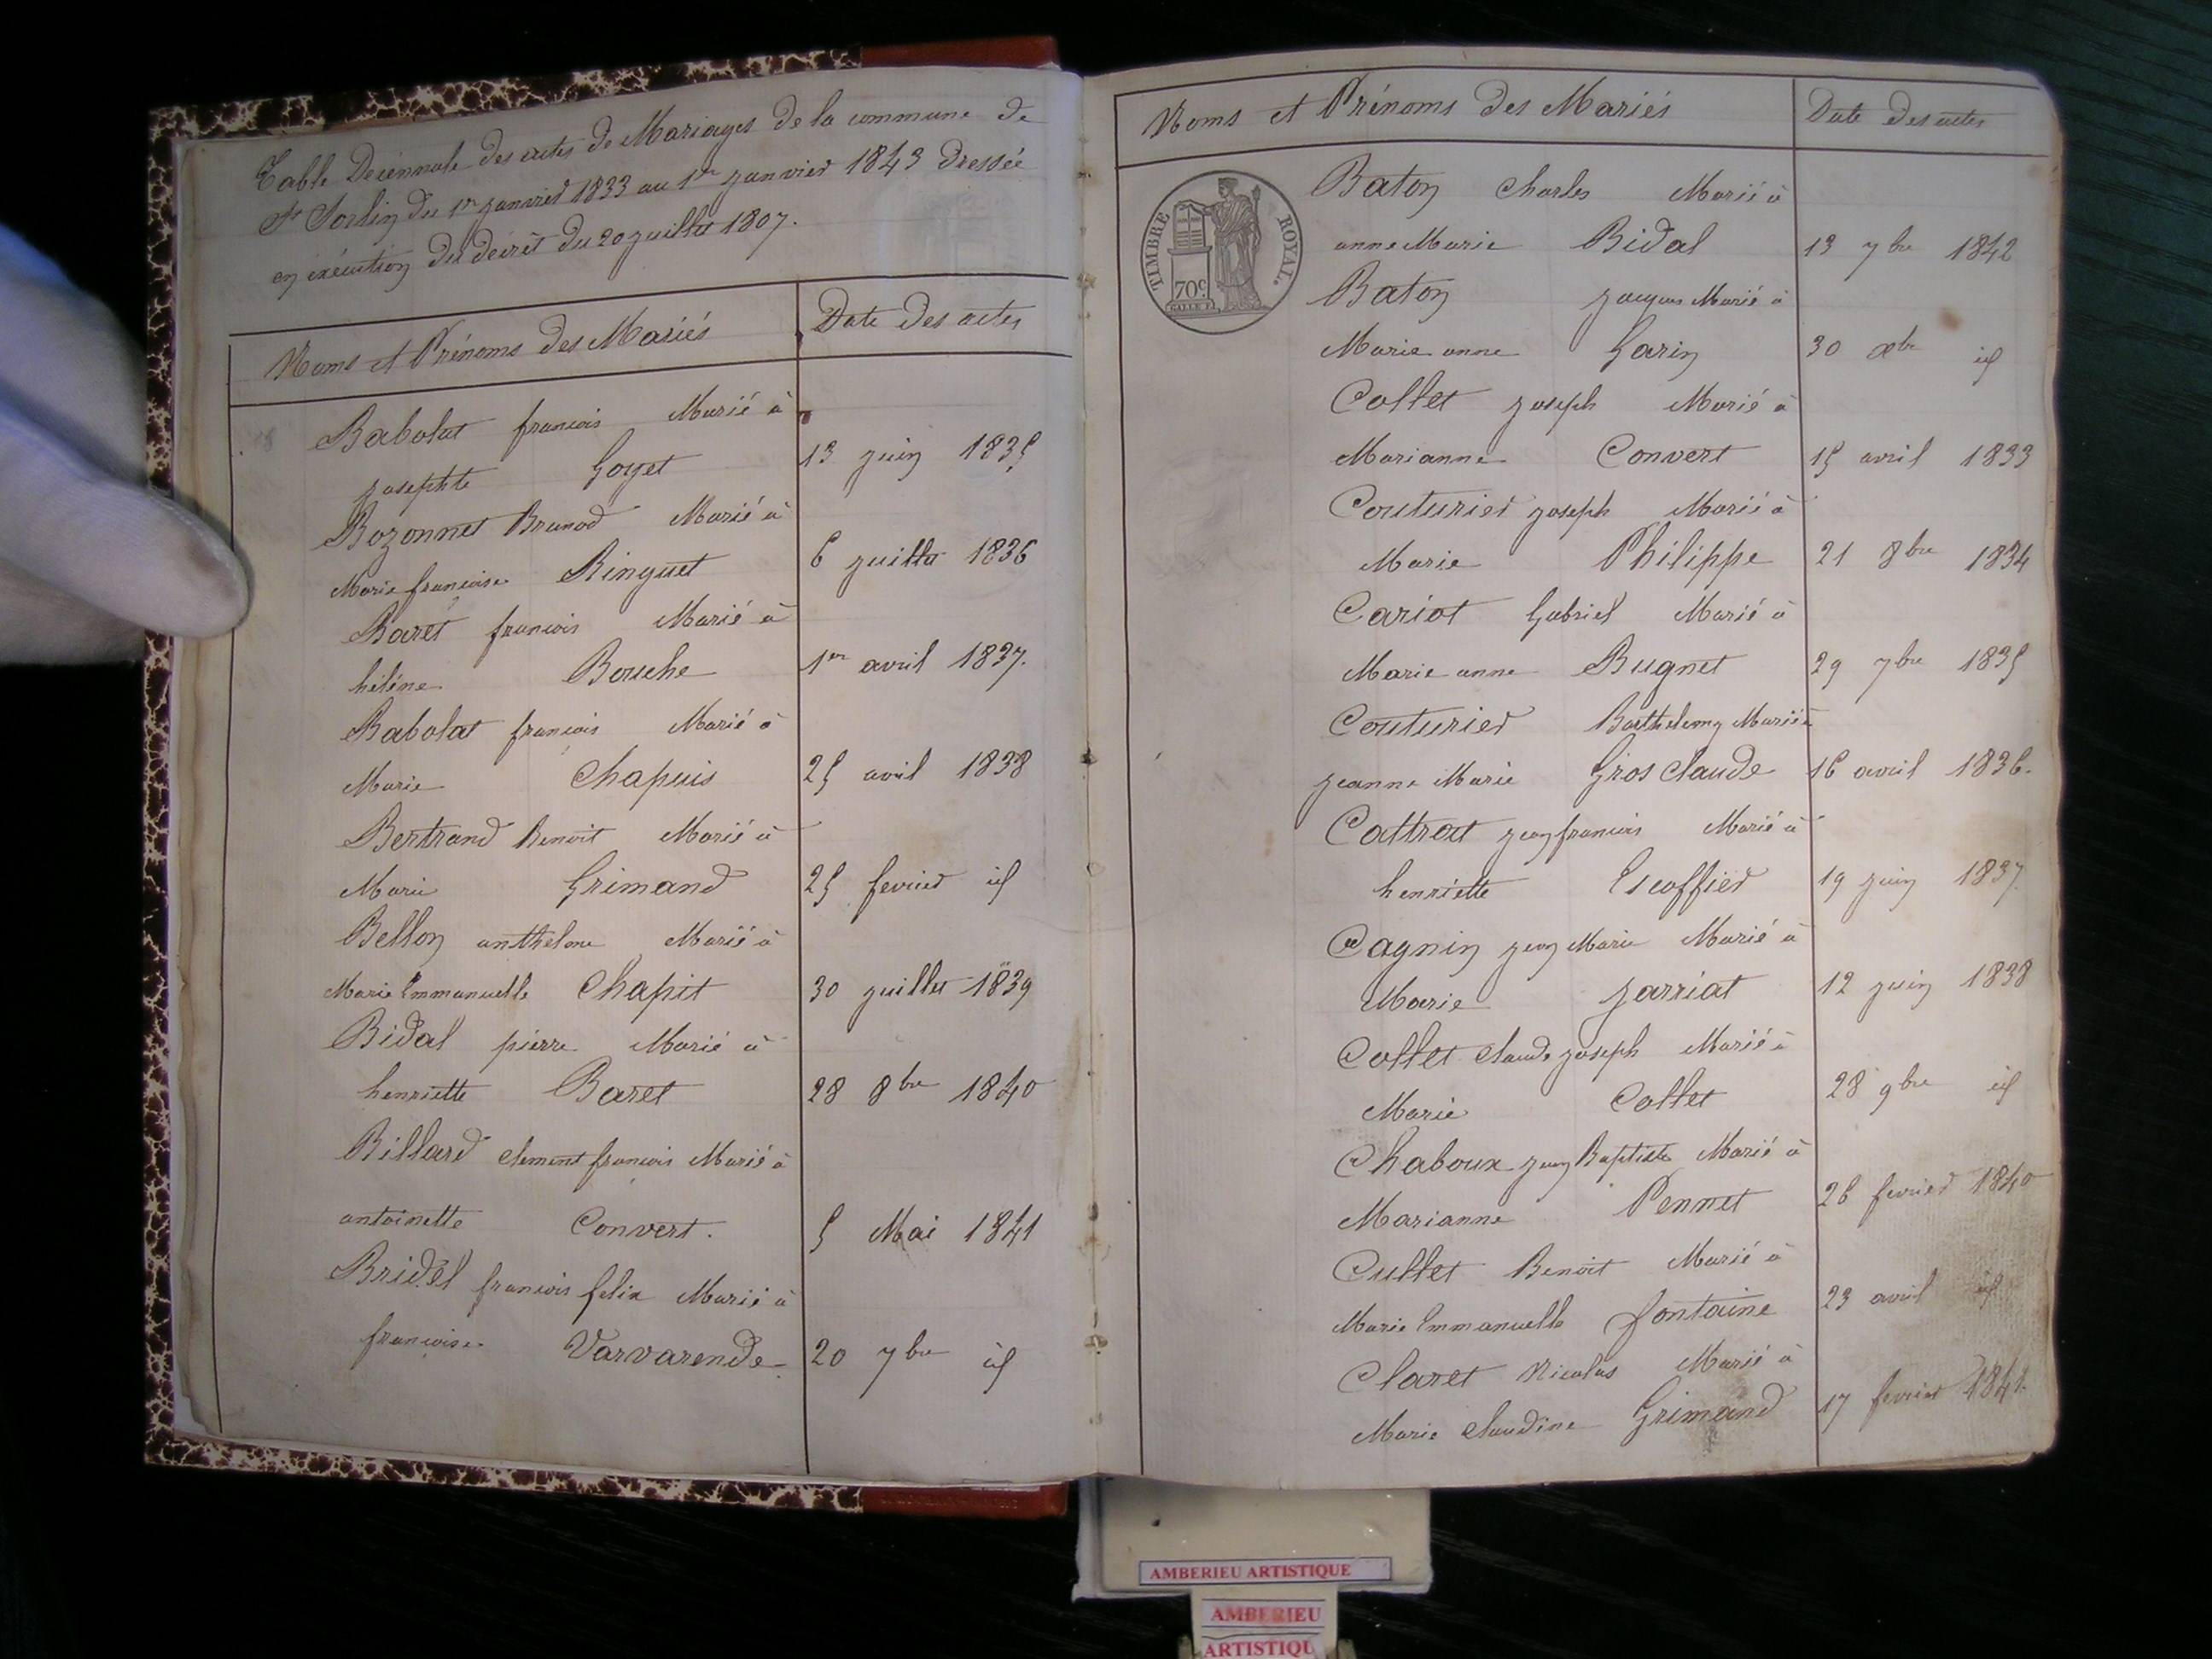 Table Décennale des actes de Mariages de la commune de
St Sorlin du 1er janvier 1833 au 1er janvier 1843 dressée
en exécution du décrèt du 20 juillet 1807.
Noms et Prénoms des Mariés
Date des actes
Babolat francois Marié à
josephte Goyet
13 juin 1835
Bozonnet Brunod Marié à
Marie francoise Ringuet
6 juillet 1836
Baret francois Marié à
hélène Bouche
1er avril 1837.
Babolat francois Marié à
Marie Chapuis
25 avril 1838
Bertrand Benoit Marié à
Marie Grimand
25 fevrier id
Bellon anthelme Marié à
Marie Emmanuelle Chapit
30 juillet 1839
Bidal pierre Marié à
henriette Baret
28 8bre 1840
Billard clement francois Marié à
antoinette Convert.
5 Mai 1841
Bridel francois felix Marié à
francoise Varvarende
20 7bre id
Noms et Prénoms des Mariés
Date des actes
TIMBRE ROYAL.
70c.
Baton Charles Marié à
anne Marie Bidal
13 7bre 1842
Baton jacques Marié à
Marie anne Garin
30 xbre id
Collet joseph Marié à
Marianne Convert
15 avril 1833
Couturier joseph Marié à
Marie Philippe
21 8bre 1834
Cariot Gabriel Marié à
Marie anne Bugnet
29 7bre 1835
Couturier Barthelemy Marié à
jeanne Marie Gros Claude
16 avril 1836.
Cottrat jean francois Marié à
henriette Escoffier
19 juin 1837.
Cagnin jean Marie Marié à
Marie jarriat
12 juin 1838
Collet Claude joseph Marié à
Marie Collet
28 9bre id
Chaboux jean Baptiste Marié à
Marianne Pennet
26 fevrier 1840
Cullet Benoit Marié à
Marie Emmanuelle fontaine
23 avril id
Claret Nicolas Marié à
Marie Claudine Grimand
17 fevrier 1841.
AMBERIEU ARTISTIQUE
AMBERIEU
ARTISTIQU